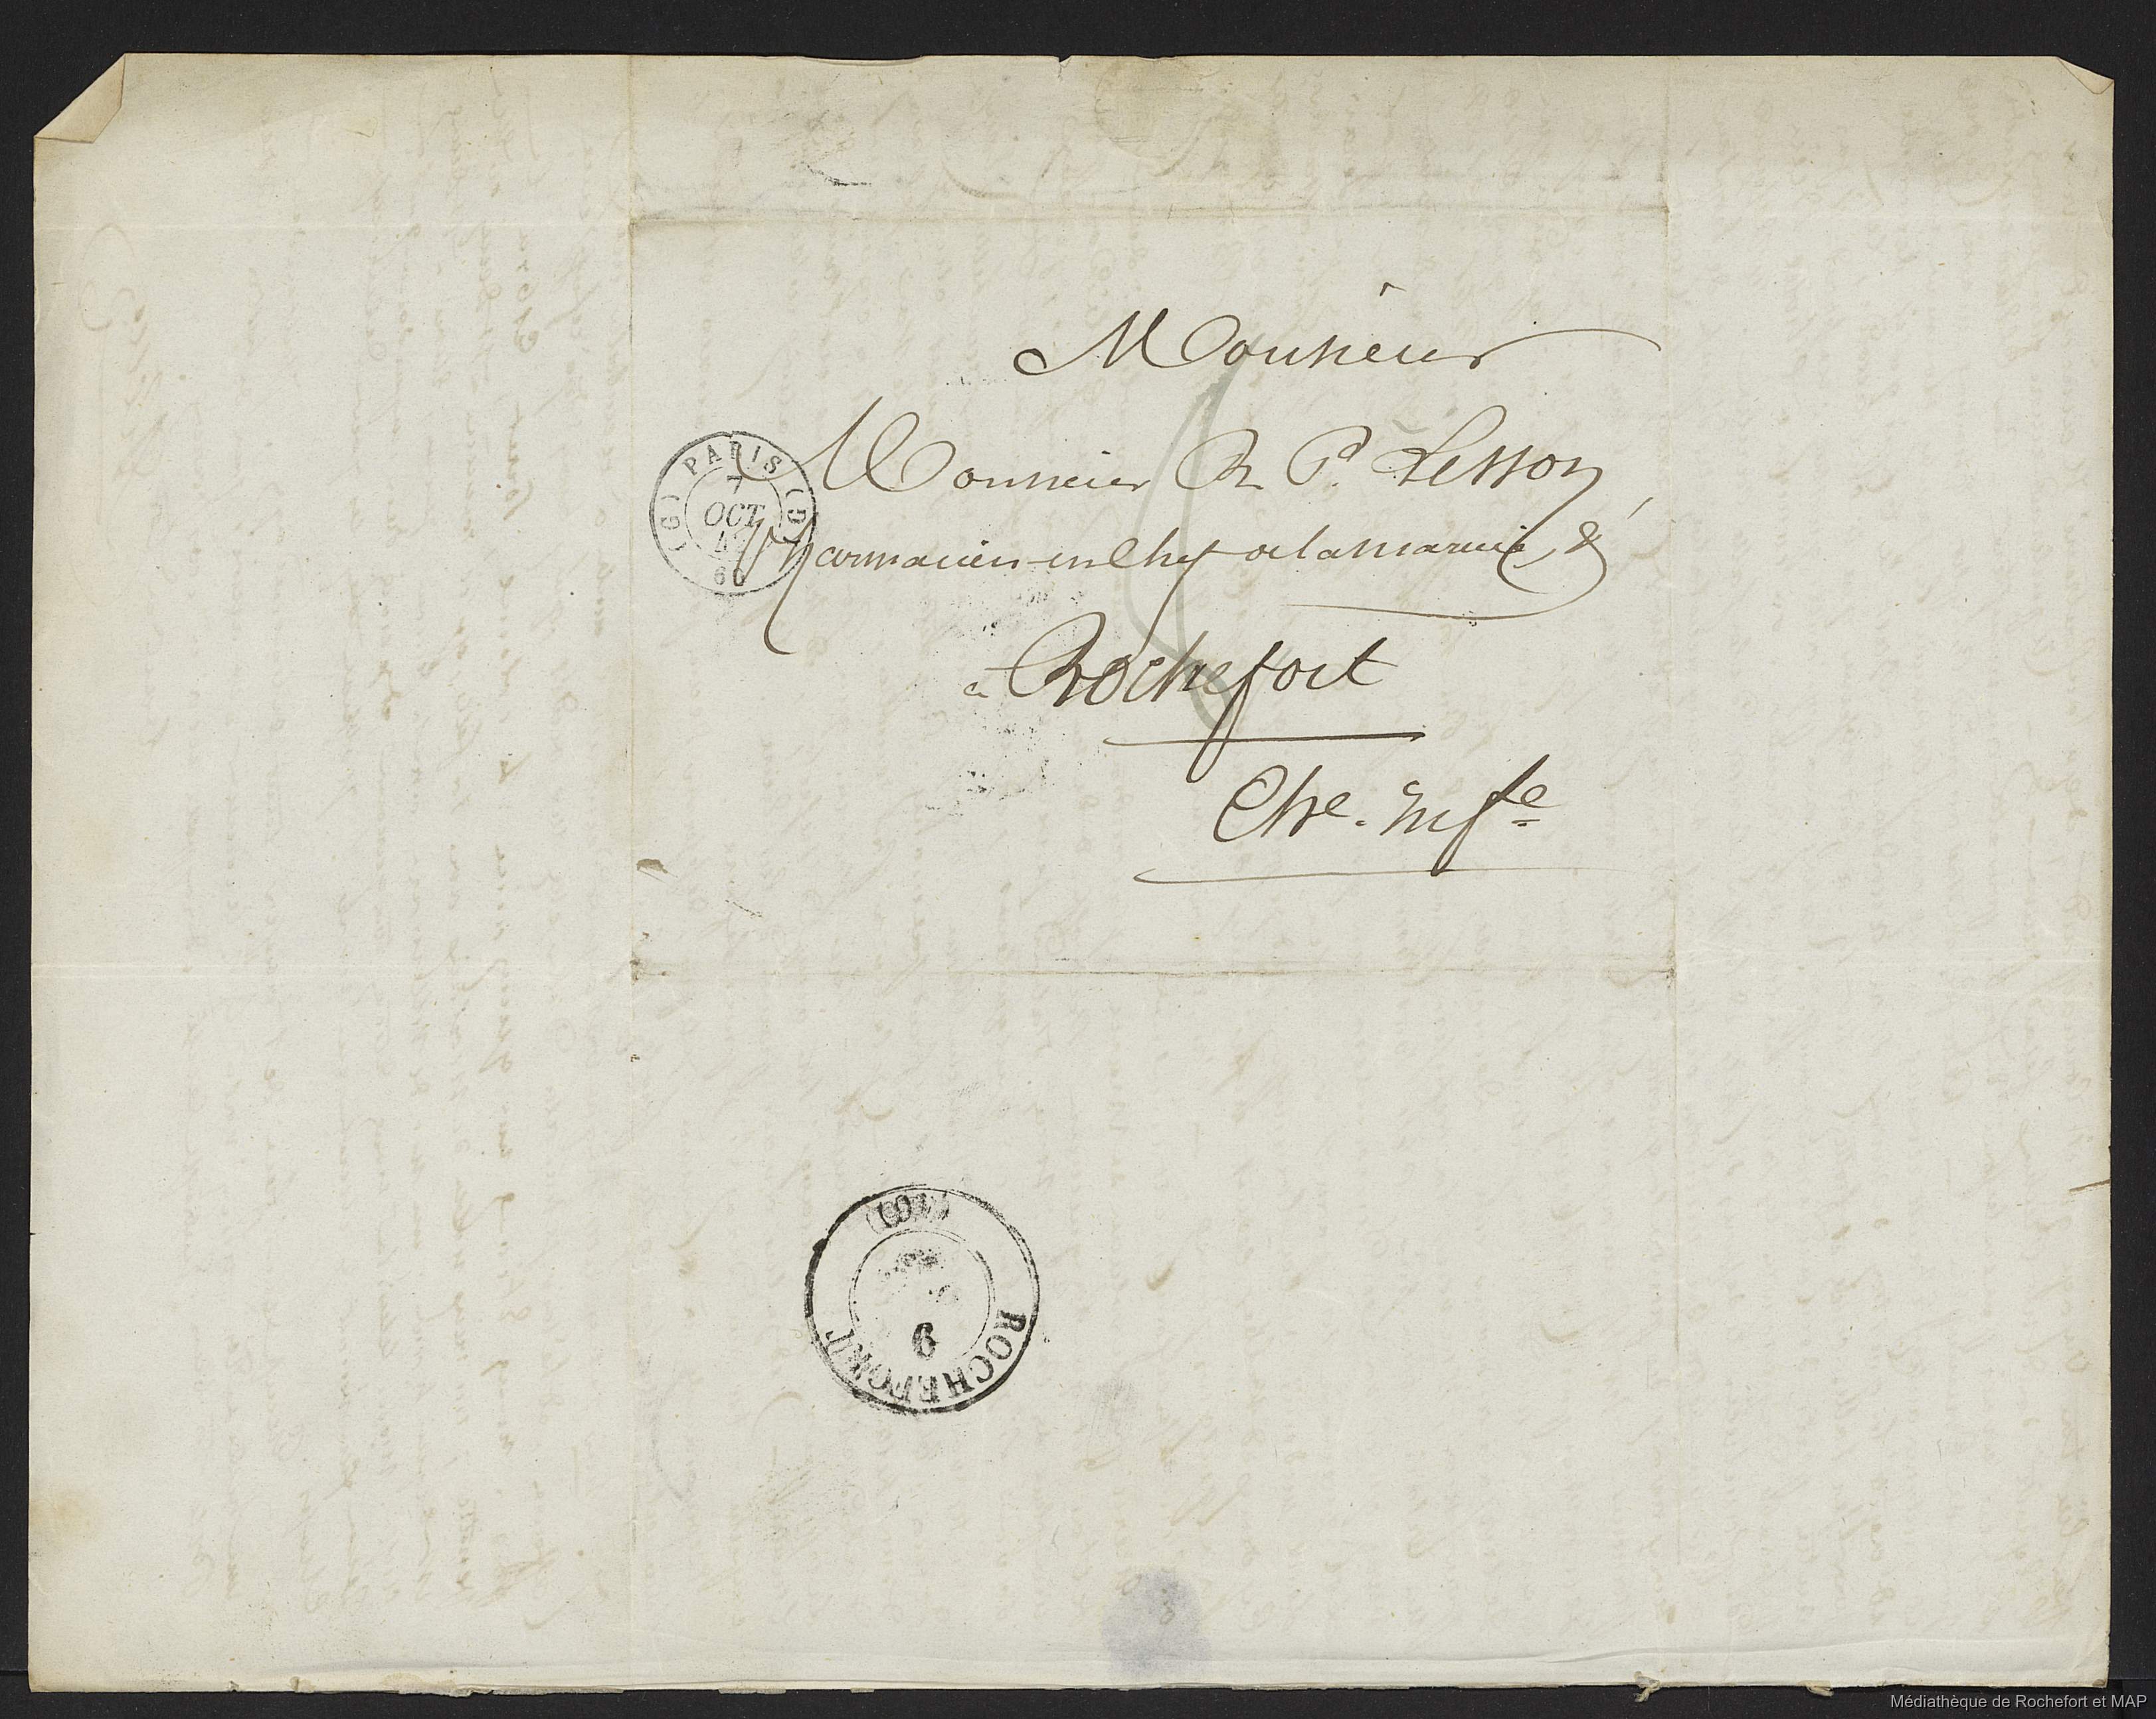 Monsieur
Monsieur R. P. Lesson
Pharmacien en Chef de la marine &
a Rochefort
Chte. Infre
PARIS
(G) (G)
7
OCT
60
ROCHEFORT
6
Médiathèque de Rochefort et MAP